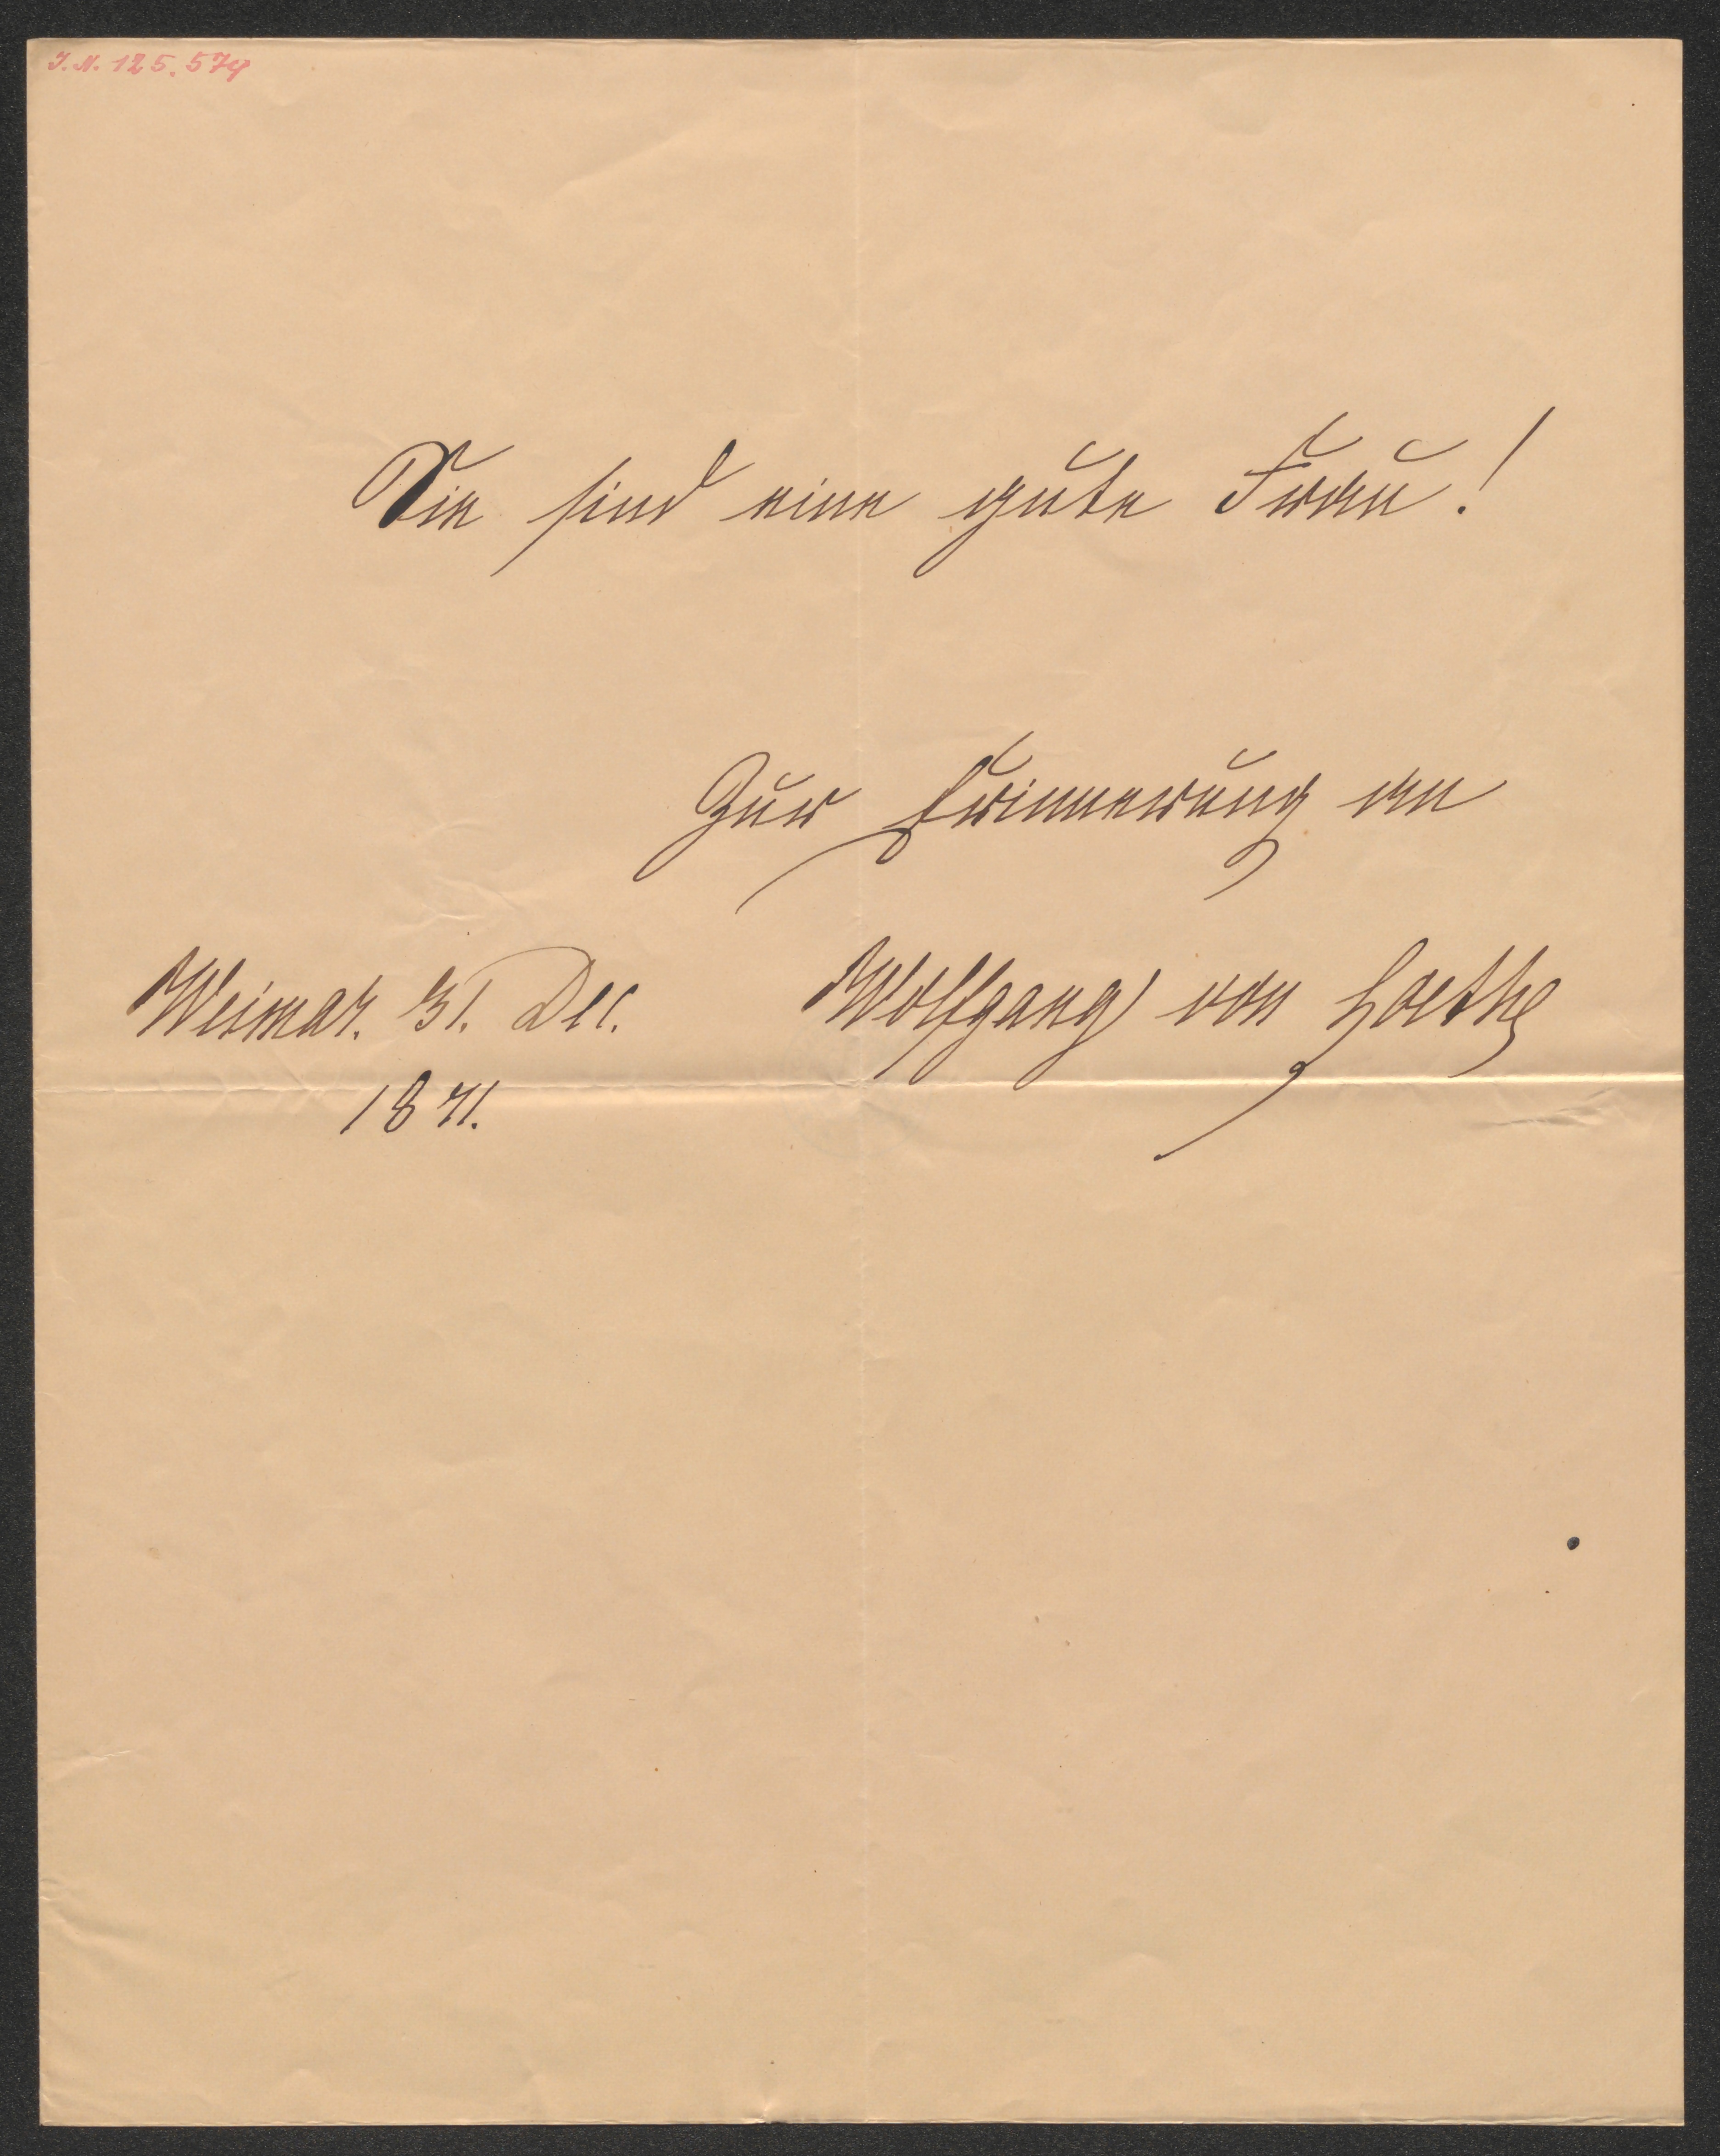 I.N. 125.574
Sie sind eine gute Frau!
Zur Erinnerung an
Weimar. 31. Dec. Wolfgang von Goethe
1871.